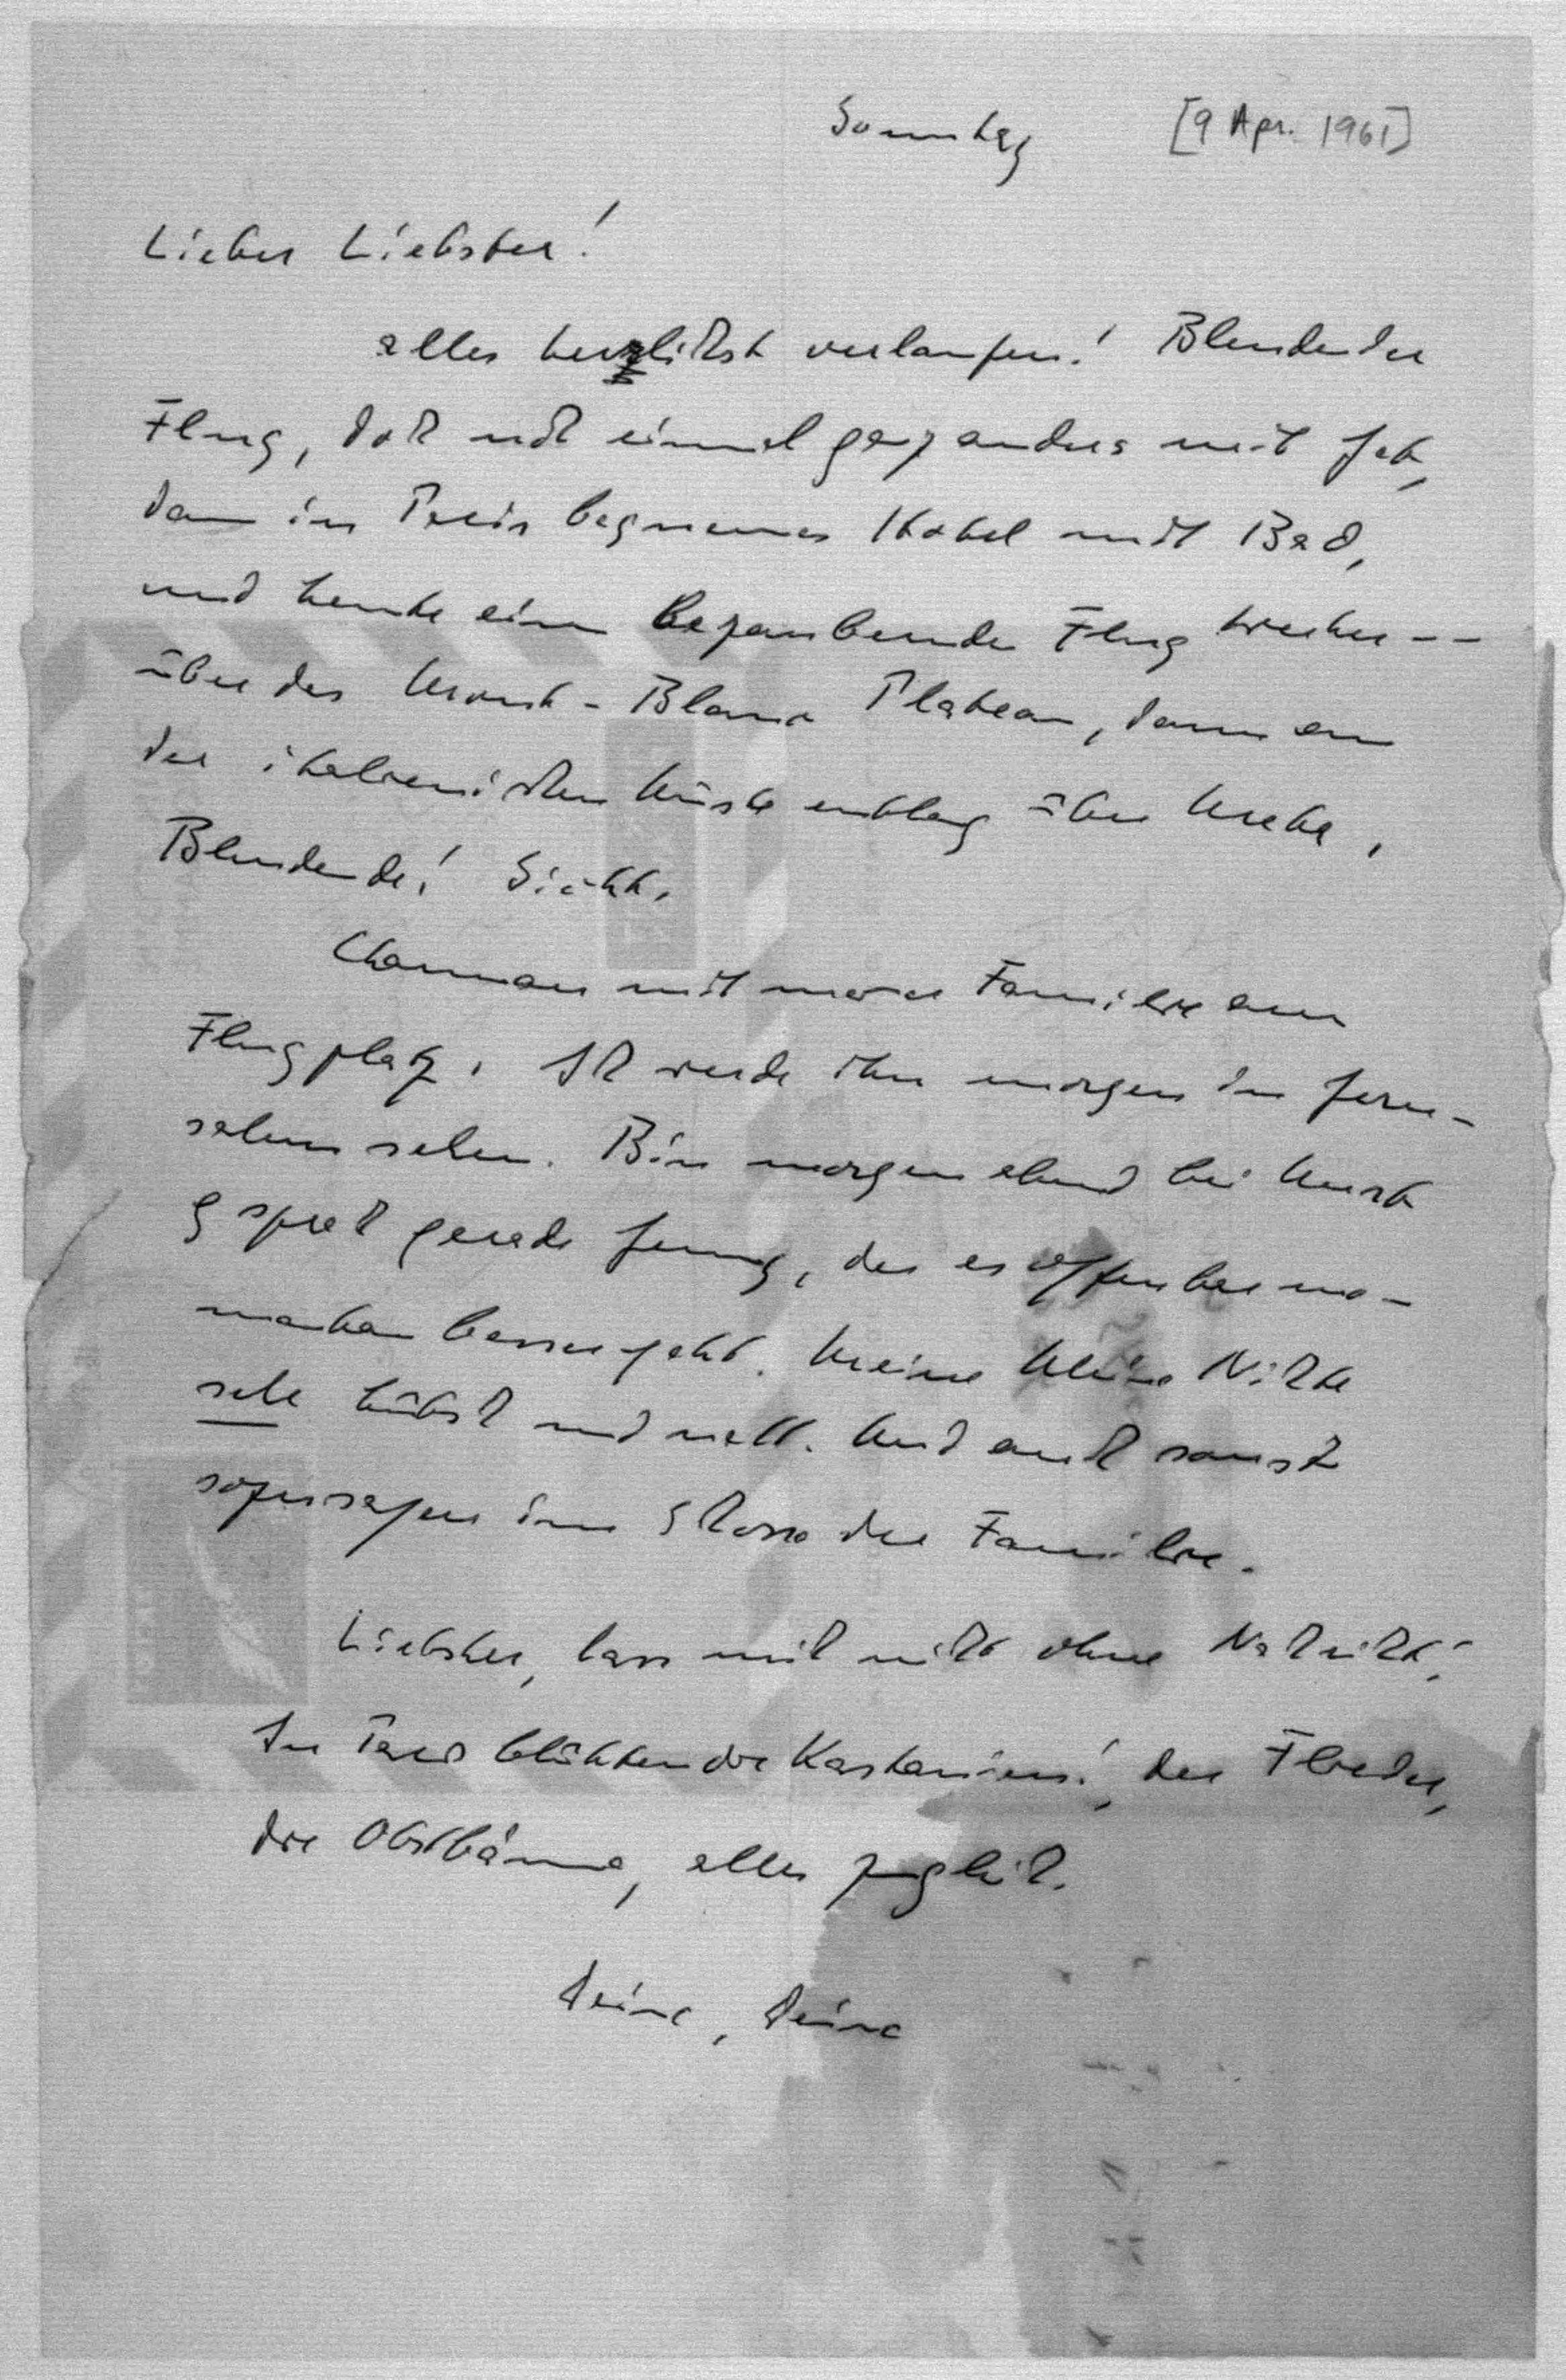 Sonntag [9 Apr. 1961]
Lieber Liebster!
alles herzlichst verlaufen! Blendender
Flug, doch noch einmal ganz anders mit Jet,
dann in Paris bequemes Hotel mit Bad,
und heute ein bezaubernder Flug hierher --
über das Mont-Blanc Plateau, dann an
der italienischen Küste entlang über Kreta.
Blendende! Sicht.
Chanan mit Familie am
Flugplatz. Ich werde ihn morgen im fern-
sehen sehen. Bin morgen abend bei Kurt
sprach gerade Jenny, der es offenbar mo-
mentan besser geht. Meine kleine Nichte
sehr hübsch und nett. Und auch sonst
sozusagen im Schosse der Familie.
Liebster, lass mich nicht ohne Nachricht!
In Paris blühten die Kastanien!, der Flieder,
die Obstbäume, alles zugleich.
Deine, Deine